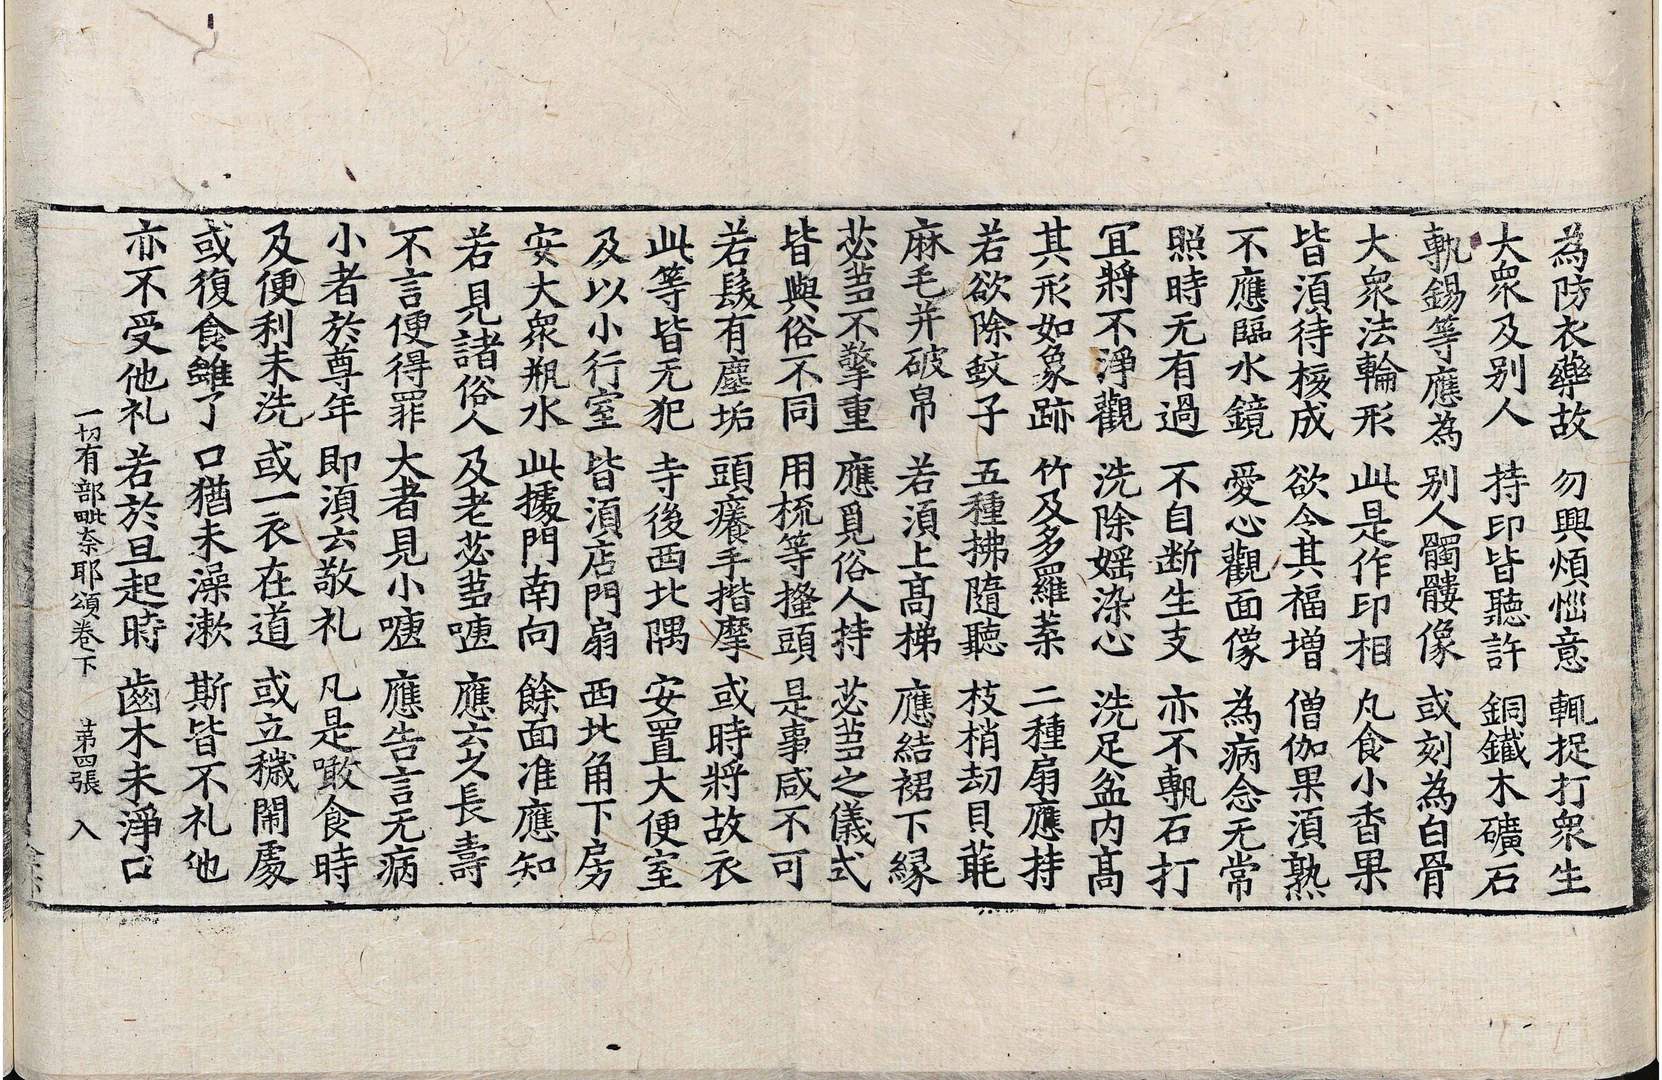 為防衣藥故　勿興煩惱意　輒捉打衆生
大衆及別人　持印皆聽許　銅鐵木礦石
執錫等應為　別人髑髏像　或刻為白骨
大衆法輪形　此是作印相　凡食小香果
皆湏待核成　欲令其福增　僧伽果湏熟
不應臨水鏡　愛心觀面像　為病念无常
照時无有過　不自断生支　亦不執石打
宜將不淨觀　洗除婬染心　洗足盆內髙
其形如象跡　竹及多羅葉　二種扇應持
若欲除蚊子　五種拂隨聽　枝梢刧貝毦
麻毛并破帛　若湏上髙梯　應結裙下緣
苾芻不擎重　應覓俗人持　苾芻之儀式
皆與俗不同　用梳等搔頭　是事咸不可
若髮有塵垢　頭癢手揩摩　或時將故衣
此等皆无犯　寺後西北隅　安置大便室
及以小行室　皆湏店門扇　西北角下房
安大衆瓶水　此據門南向　餘面准應知
若見諸俗人　及老苾芻嚏　應云久長壽
不言便得罪　大者見小嚏　應告言无病
小者於尊年　即湏云敬礼　凡是噉食時
及便利未洗　或一衣在道　或立穢閙處
或復食雖了　口猶未澡漱　斯皆不礼他
亦不受他礼　若於旦起時　齒木未淨口
一切有部毗奈耶頌卷下　第四張　入